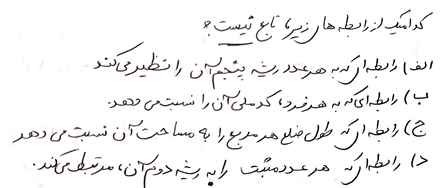 کدامیک از رابطه های زیر، تابع نیست؟
الف) رابطه ای که به هر عدد ریشه پنجم آن را نظیر می کند
ب) رابطه ای که به هر فرد، کد ملی آن را نسبت می دهد.
ج) رابطه ای که طول ضلع هر مربع را به مساحت آن نسبت می دهد
د) رابطه ای که هر عدد مثبت را به ریشه دوم آن، مرتبط می کند.